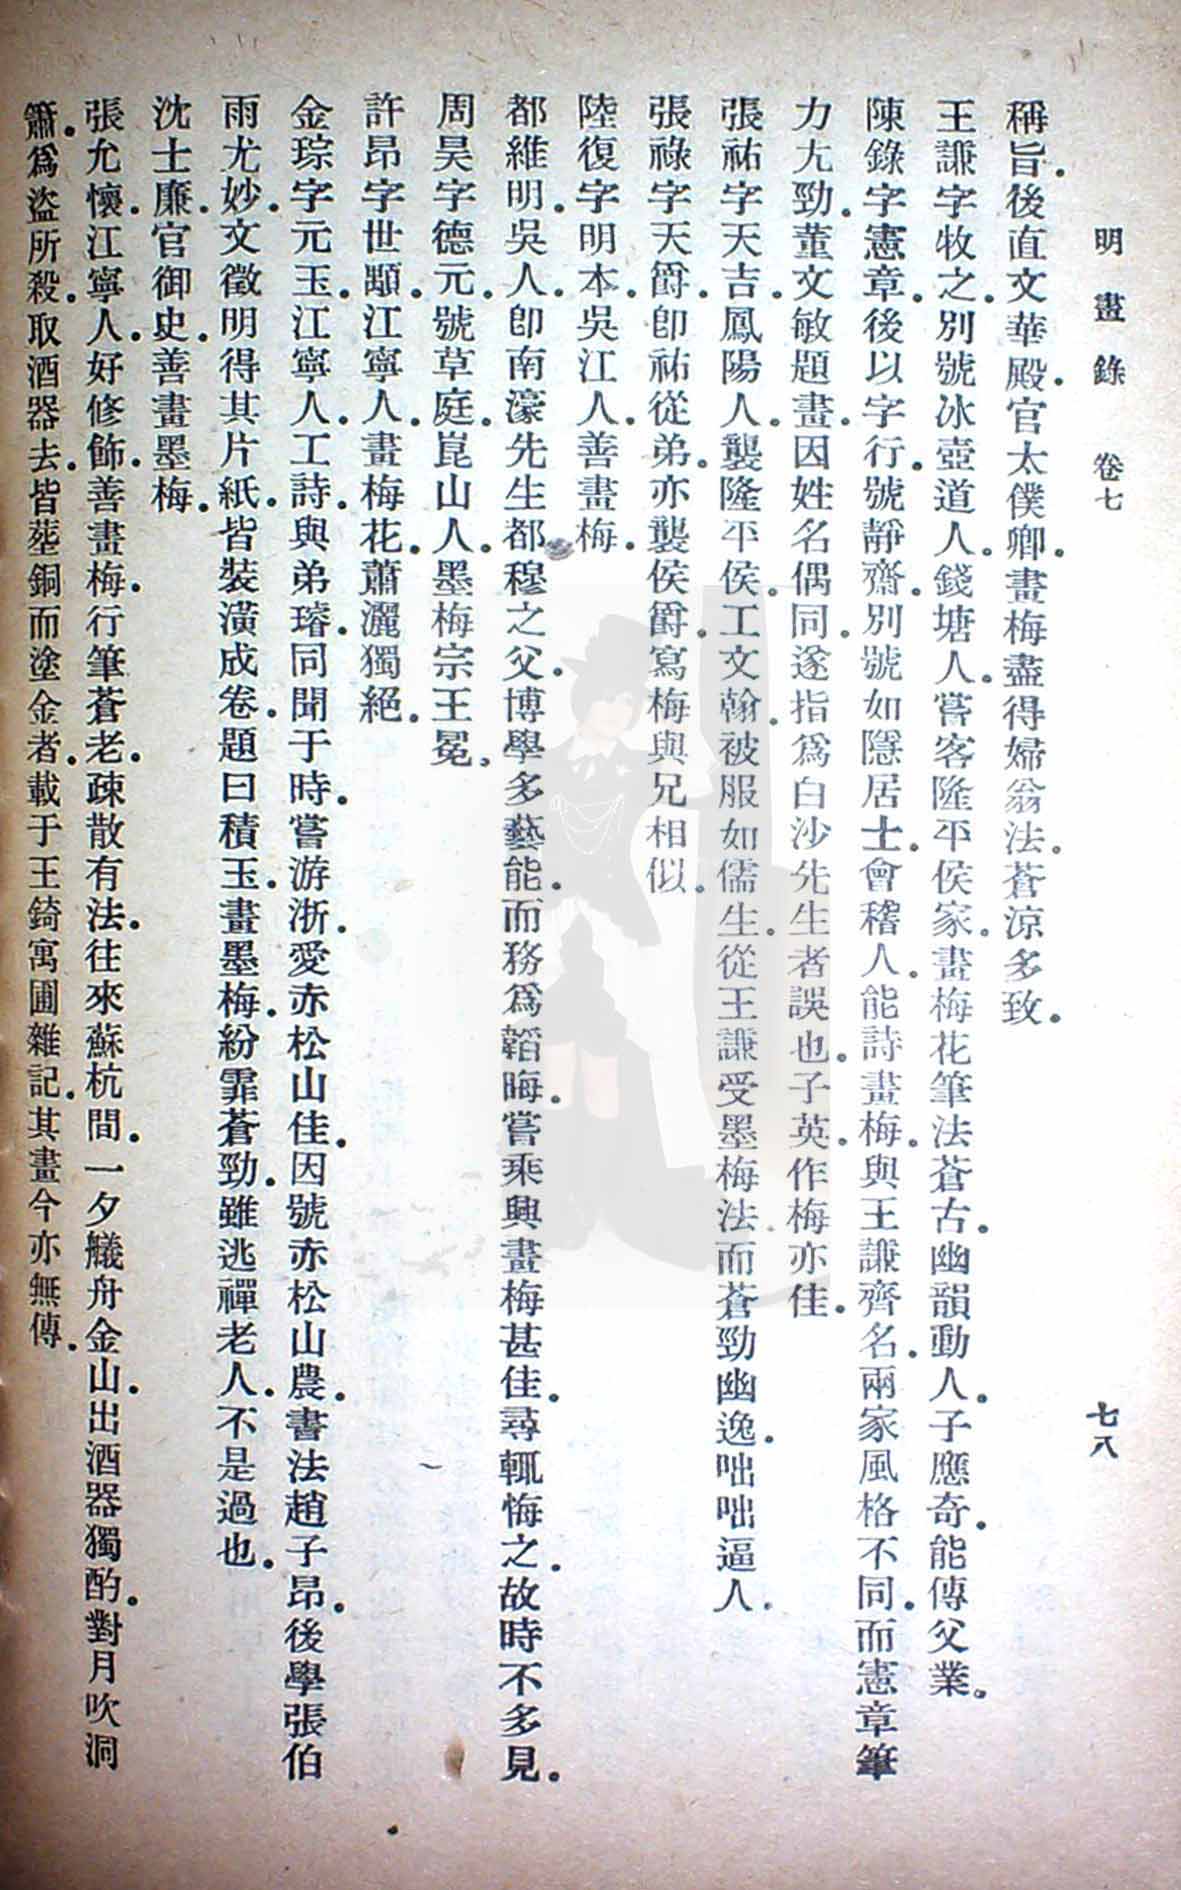 明畫錄 卷七 七八
稱旨。後直文華殿。官太僕卿。畫梅盡得婦翁法。蒼涼多致。
王謙字牧之。別號冰壺道人。錢塘人。嘗客隆平侯家。畫梅花筆法蒼古。幽韻動人。子應奇。能傳父業。
陳錄字憲章。後以字行。號靜齋。別號如隱居士。會稽人。能詩畫梅。與王謙齊名。兩家風格不同。而憲章筆
力尤勁。董文敏題畫。因姓名偶同。遂指爲白沙先生者誤也。子英。作梅亦佳。
張祐字天吉。鳳陽人。襲隆平侯。工文翰。被服如儒生。從王謙受墨梅法。而蒼勁幽逸。咄咄逼人。
張祿字天爵。卽祐從弟。亦襲侯爵。寫梅與兄相似。
陸復字明本。吳江人。善畫梅。
都維明。吳人。卽南濠先生都穆之父。博學多藝能。而務爲韜晦。嘗乘興畫梅甚佳。尋輒悔之。故時不多見。
周昊字德元。號草庭。崑山人。墨梅宗王冕。
許昂字世顒。江寧人。畫梅花。蕭灑獨絕。
金琮字元玉。江寧人。工詩。與弟璿。同聞于時。嘗游浙。愛赤松山佳。因號赤松山農。書法趙子昂。後學張伯
雨尤妙。文徵明得其片紙。皆裝潢成卷。題曰積玉。畫墨梅。紛霏蒼勁。雖逃禪老人。不是過也。
沈士廉。官御史。善畫墨梅。
張允懷。江寧人。好修飾。善畫梅。行筆蒼老。疎散有法。往來蘇杭間。一夕艤舟金山。出酒器獨酌。對月吹洞
簫。爲盜所殺。取酒器去。皆葢銅而塗金者。載于王錡寓圃雜記。其畫今亦無傳。